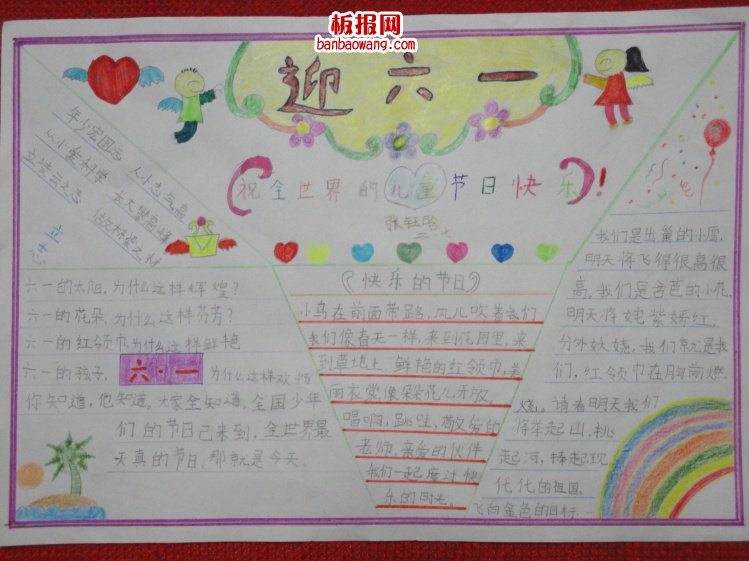 板报网
banbaowang.com
迎六一
祝全世界的儿童节日快乐!
年少宏图远
从小志气高
从小爱科学
长大攀高峰
立凌云之志
立志
六一的太阳,为什么这样辉煌?
六一的花朵,为什么这样芬芳?
六一的红领巾为什么这样鲜艳
六一的孩子,六·一为什么这样欢畅
你知道,他知道。大家全知道,全国少年
们的节日已来到,全世界最
天真的节日,那就是今天。
快乐的节日
小鸟在前面带路,风儿吹着我们
我们像春天一样,来到花园里,来
到草地上 鲜艳的红领巾,美
丽衣裳,像朵朵花儿开放。
唱啊,跳哇,敬爱的
老师,亲爱的伙伴
我们一起度过快
乐的时光。
我们是出巢的小鹰,
明天将飞得很高很
高。我们是含苞的小花,
明天将姹紫嫣红,
分外妖娆,我们就是我
们,红领巾在胸前燃
烧。请看明天我们
将举起山,挑
起河,捧起现
代化的祖国,
飞向金色的目标.